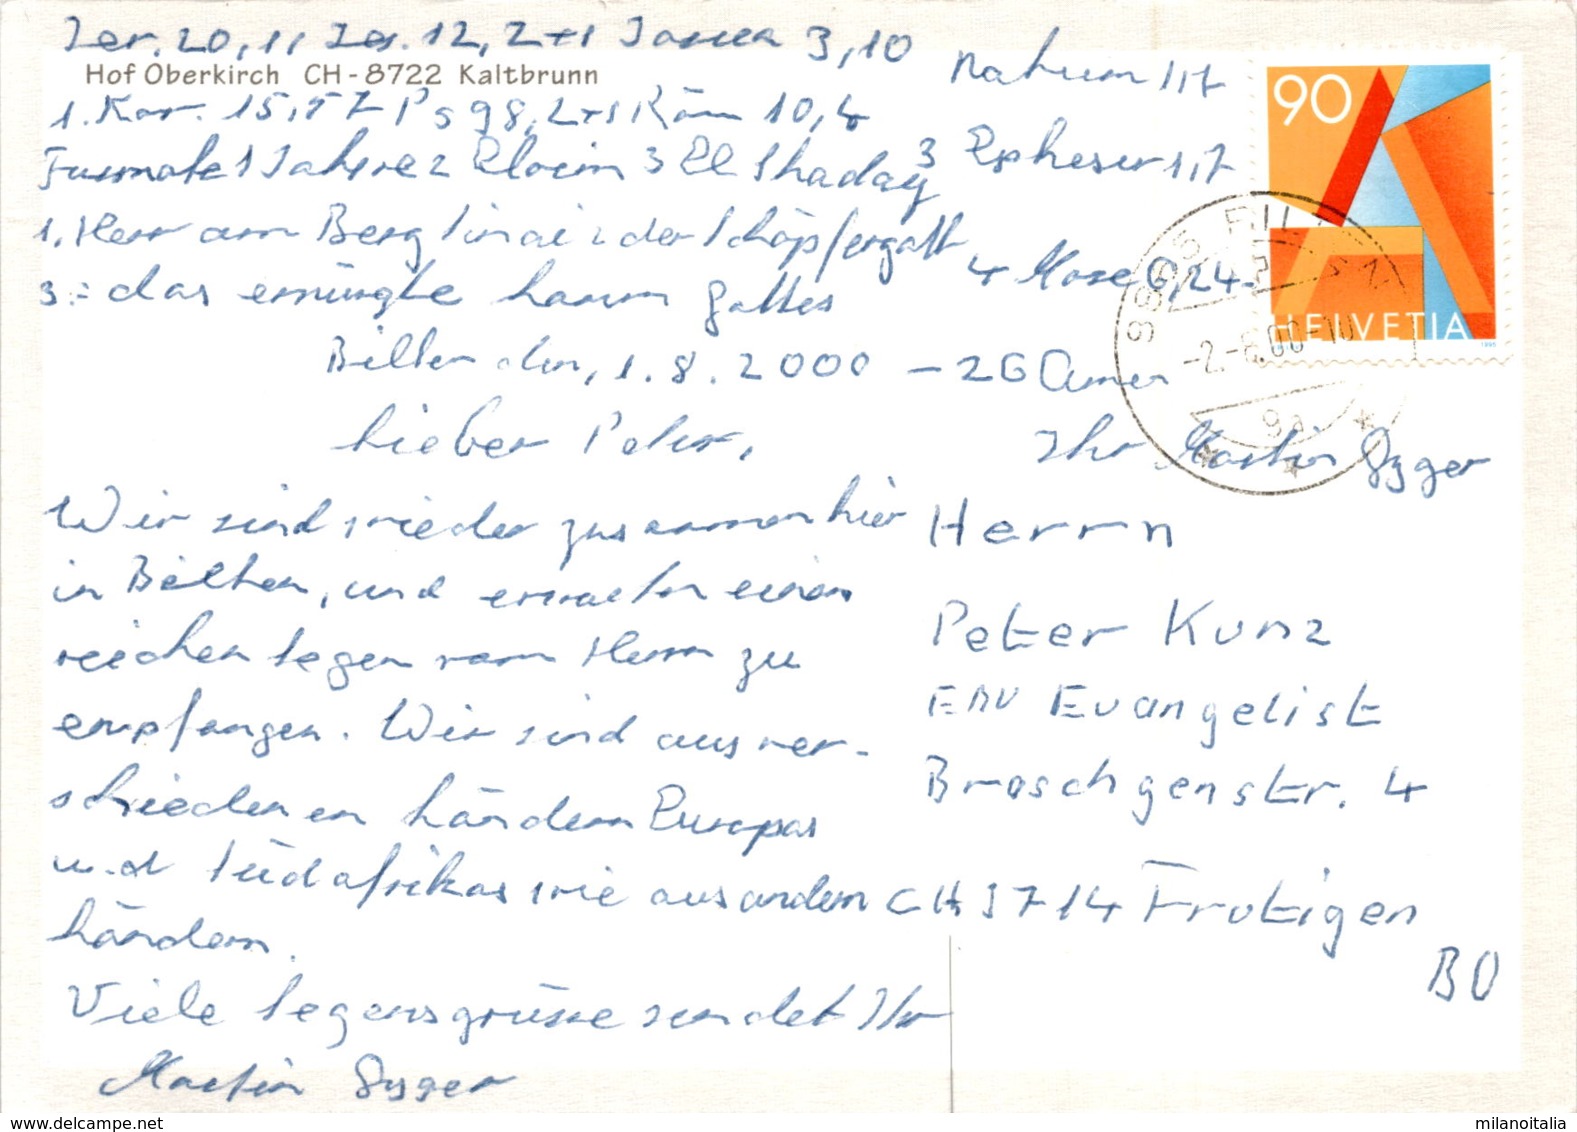 Jer. 20,11 Jes. 12, 2+1 Josua 3,10
Hof Oberkirch CH-8722 Kaltbrunn
Nahum 1,7
1. Kor. 15,57 Ps 98, 2+1 Röm 10,4
1 Jahwe 2 Eloim 3 El Shaday
3 Epheser 1,7
1. Herr am Berg Sinai 2 der Schöpfergott
3 = das Gottes
4 Mose 6,24-
Bilten den, 1.8.2000
-26 Amen
Lieber Peter,
Ihr Martin Gyger
Wir sind wieder zusammen hier
in Bilten, und erwarten einen
reichen Segen vom Herrn zu
empfangen. Wir sind aus ver-
schiedenen Ländern Europas
und Südafrikas wie aus andern
Ländern.
Viele Segensgrüsse sendet Ihr
Martin Gyger
Herrn
Peter Kunz
Evangelist
4
CH 3714 Frutigen
BO
90
HELVETIA
1995
8865
-2.-8.00-10
9a
milanoitalia